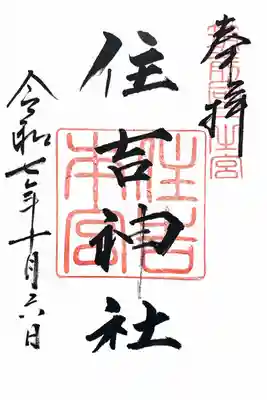 奉拝
住吉神社
住吉
本宮
令和七年十月六日